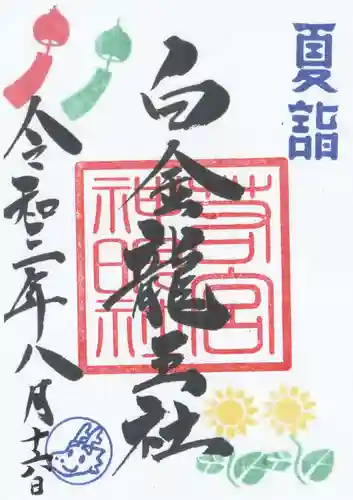 夏詣
若宮
神明社
白金龍王社
令和二年八月十六日